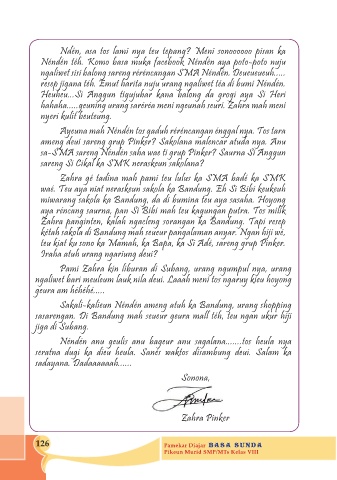 Ndén, asa tos lami nya teu tepang? Meni sonoooooo pisan ka
Nénden téh. Komo basa muka facebook Nénden aya poto-poto nuju
ngaliwet sisi balong sareng réréncangan SMA Nénden. Deueueueuh.....
resep jigana téh. Émut barita nuju urang ngaliwet téa di bumi Nénden.
Heuheu...Si Anggun tiguyubur kana balong da grogi aya Si Heri
hahaha.....geuning urang saréréa meni ngeunah seuri. Zahra mah meni
nyeri kulit beuteung.
Ayeuna mah Nénden tos gaduh réréncangan énggal nya. Tos tara
ameng deui sareng grup Pinker? Sakolana malencar atuda nya. Anu
sa-SMA sareng Nénden saha wae ti grup Pinker? Saurna Si Anggun
sareng Si Cikal ka SMK neraskeun sakolana?
Zahra gé tadina mah pami teu lulus ka SMA badé ka SMK
waé. Teu aya niat neraskeun sakola ka Bandung. Eh Si Bibi keukeuh
miwarang sakola ka Bandung, da di bumina teu aya sasaha. Hoyong
aya réncang saurna, pan Si Bibi mah teu kagungan putra. Tos milik
Zahra panginten, kalah ngacleng sorangan ka Bandung. Tapi resep
kétah sakola di Bandung mah seueur pangalaman anyar. Ngan hiji wé,
teu kiat ku sono ka Mamah, ka Bapa, ka Si Adé, sareng grup Pinker.
Iraha atuh urang ngariung deui?
Pami Zahra kin liburan di Subang, urang ngumpul nya, urang
ngaliwet bari meuleum lauk nila deui. Laaah meni tos ngaruy kieu hoyong
geura am héhéhé.....
Sakali-kalieun Nénden ameng atuh ka Bandung, urang shopping
sasarengan. Di Bandung mah seueur geura mall téh, teu ngan ukur hiji
jiga di Subang.
Nénden anu geulis anu bageur anu sagalana.......tos heula nya
seratna dugi ka dieu heula. Sanés waktos disambung deui. Salam ka
sadayana. Dadaaaaaah......
Sonona,
Zahra Pinker
126
Pamekar Diajar BASA SUNDA
Pikeun Murid SMP/MTs Kelas VIII